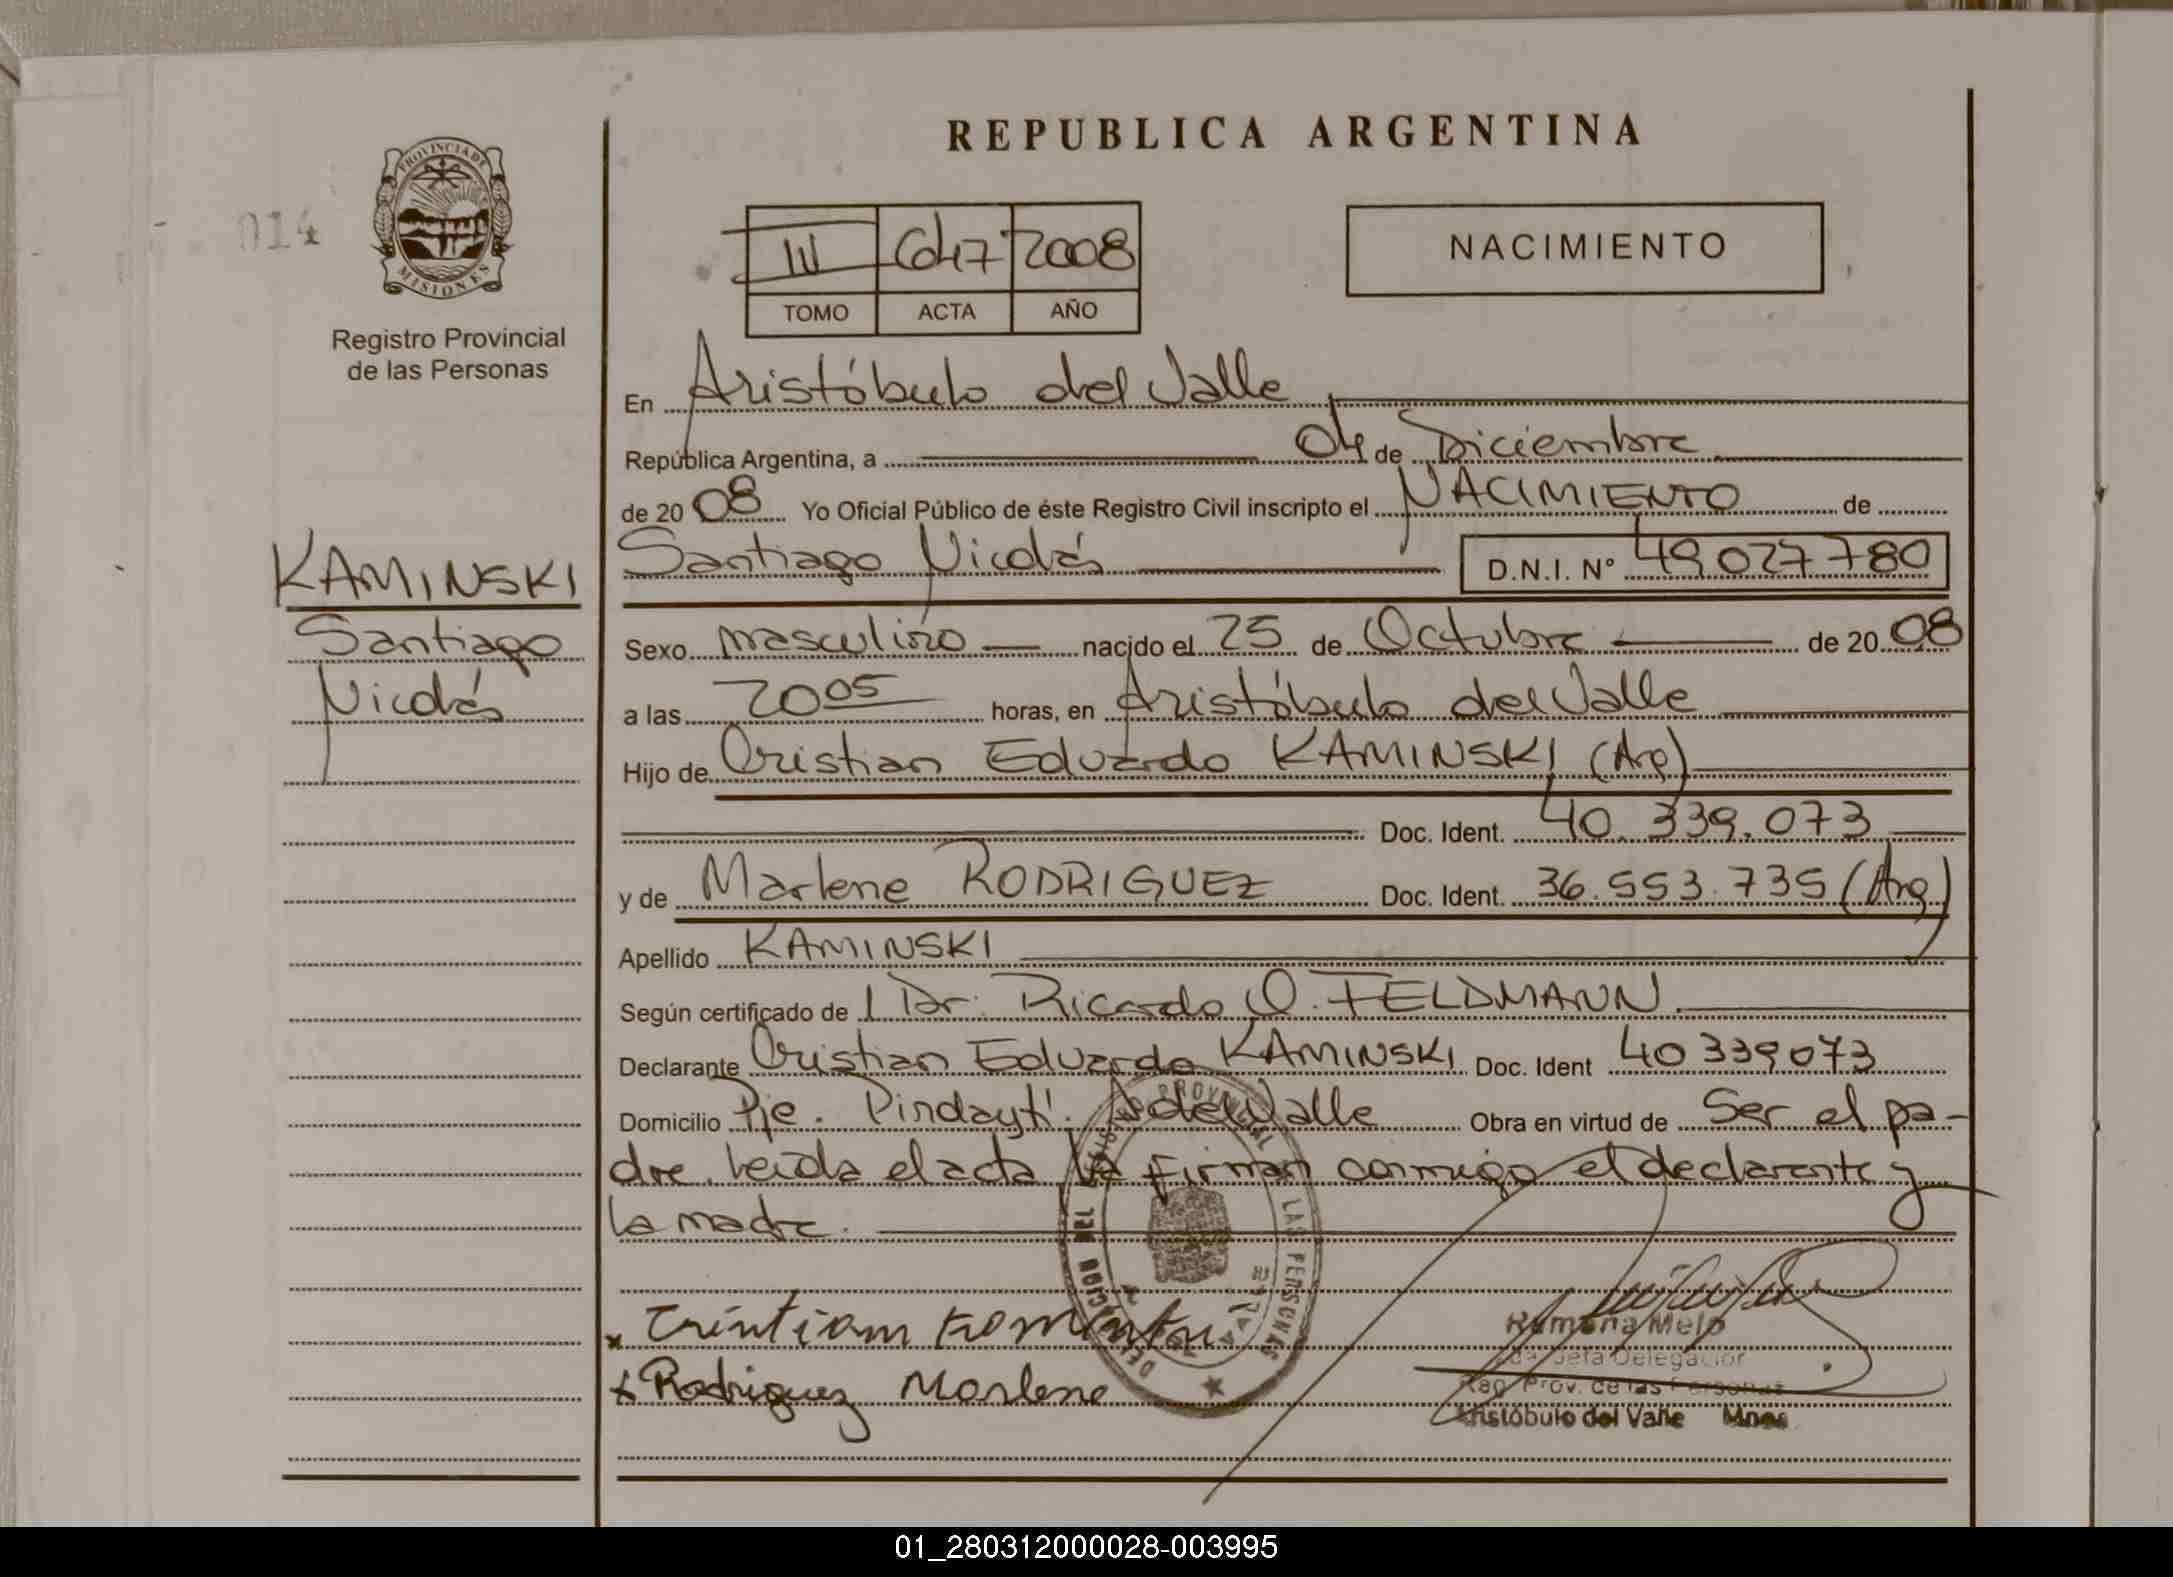 REPUBLICA ARGENTINA
PROVINCIA DE
MISIONES
014
Registro Provincial
de las Personas
III 647 2008
TOMO ACTA AÑO
NACIMIENTO
En Aristóbulo del Valle
República Argentina, a 04 de Diciembre
de 2008 Yo Oficial Público de éste Registro Civil inscripto el NACIMIENTO de
Santiago Nicolás D.N.I. N° 49027780
KAMINSKI
Santiago
Nicolás
Sexo masculino nacido el 25 de Octubre de 2008
a las 20 05 horas, en Aristóbulo del Valle
Hijo de Cristian Eduardo KAMINSKI (Arg)
Doc. Ident. 40.339.073
y de Marlene RODRIGUEZ Doc. Ident. 36.553.735 (Arg)
Apellido KAMINSKI
Según certificado de 1 Dr. Ricardo O. FELDMANN
Declarante Cristian Eduardo KAMINSKI Doc. Ident 40339073
Domicilio Pje. Pindaytí. A del Valle Obra en virtud de Ser el pa-
dre. Leída el acta la firman conmigo el declarante y
la madre.
Ramona Melo
Jefa Delegación
Reg. Prov. de las Personas
Aristóbulo del Valle Mnes
x Rodriguez Marlene
01_280312000028-003995